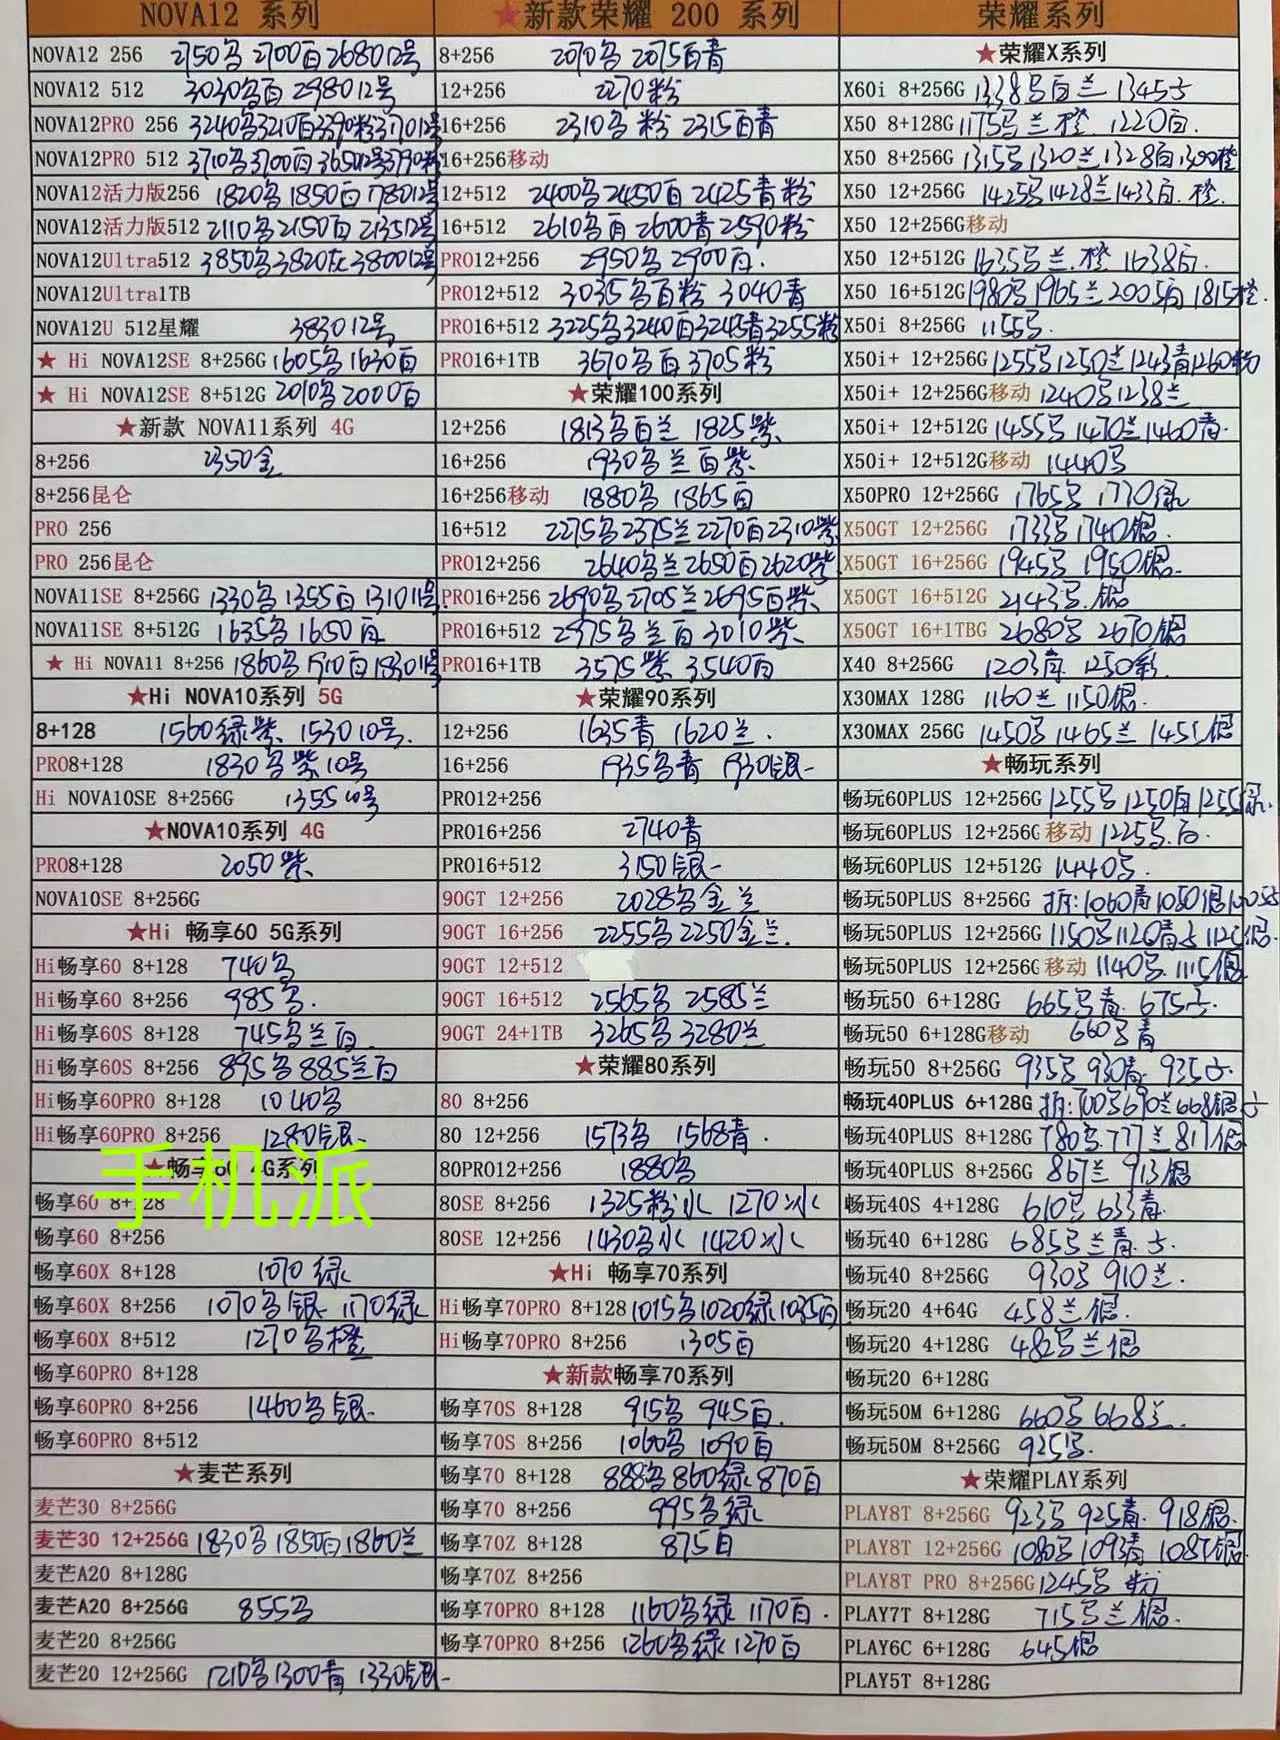 NOVA12 系列
NOVA12 256 2750 2700白 2680 12号
NOVA12 512 3030 白 2980 12号
NOVA12PRO 256 3240 3210白 3390粉 3170 12号
NOVA12PRO 512 3710 3700白 3650 12号 3790粉
NOVA12活力版256 1820 1850白 1780 12号
NOVA12活力版512 2110 2150白 2135 12号
NOVA12Ultra512 3850 3820灰 3800 12号
NOVA12Ultra1TB
NOVA12U 512星耀 3830 12号
★ Hi NOVA12SE 8+256G 1605 1630白
★ Hi NOVA12SE 8+512G 2010 2000白
★新款 NOVA11系列 4G
8+256 2350金
8+256昆仑
PRO 256
PRO 256昆仑
NOVA11SE 8+256G 1330 1355白 1310 11号
NOVA11SE 8+512G 1635 1650白
★ Hi NOVA11 8+256 1860 1910白 1830 11号
★Hi NOVA10系列 5G
8+128 1560绿紫 1530 10号
PRO8+128 1830 紫 10号
Hi NOVA10SE 8+256G 1355 10号
★NOVA10系列 4G
PRO8+128 2050紫
NOVA10SE 8+256G
★Hi 畅享60 5G系列
Hi畅享60 8+128 740
Hi畅享60 8+256 985
Hi畅享60S 8+128 745 兰白
Hi畅享60S 8+256 895 885兰白
Hi畅享60PRO 8+128 1040
Hi畅享60PRO 8+256 1280银
手机派
★畅享60 4G系列
畅享60 8+128
畅享60 8+256
畅享60X 8+128 1070绿
畅享60X 8+256 1070 银 1170绿
畅享60X 8+512 1270 橙
畅享60PRO 8+128
畅享60PRO 8+256 1460 银
畅享60PRO 8+512
★麦芒系列
麦芒30 8+256G
麦芒30 12+256G 1830 1850白 1860兰
麦芒A20 8+128G
麦芒A20 8+256G 855
麦芒20 8+256G
麦芒20 12+256G 1210 1300青 1330银
★新款荣耀 200 系列
8+256 2090 2075白青
12+256 2270粉
16+256 2310 粉 2315白青
16+256移动
12+512 2400 2450白 2425青粉
16+512 2610 白 2600青 2590粉
PRO12+256 2950 2900白
PRO12+512 3035 白粉 3040青
PRO16+512 3225 3240白 3245青 3255粉
PRO16+1TB 3670 白 3705粉
★荣耀100系列
12+256 1813 白兰 1825紫
16+256 1930 兰白紫
16+256移动 1880 1865白
16+512 2275 2375兰 2270白 2310紫
PRO12+256 2640 兰 2650白 2620紫
PRO16+256 2690 2705兰 2695白紫
PRO16+512 2975 兰白 3010紫
PRO16+1TB 3575紫 3540白
★荣耀90系列
12+256 1635青 1620兰
16+256 1935 青 1930银
PRO12+256
PRO16+256 2740青
PRO16+512 3150银
90GT 12+256 2028 金兰
90GT 16+256 2255 2250金兰
90GT 12+512
90GT 16+512 2565 2585兰
90GT 24+1TB 3265 3280兰
★荣耀80系列
80 8+256
80 12+256 1573 1568青
80PRO12+256 1880
80SE 8+256 1325粉 1270
80SE 12+256 1430 1420
★Hi 畅享70系列
Hi畅享70PRO 8+128 1015 1020绿 1035白
Hi畅享70PRO 8+256 1305白
★新款畅享70系列
畅享70S 8+128 915 945白
畅享70S 8+256 1060 1090白
畅享70 8+128 888 860绿 870白
畅享70 8+256 995 绿
畅享70Z 8+128 875白
畅享70Z 8+256
畅享70PRO 8+128 1160 绿 1170白
畅享70PRO 8+256 1260 绿 1270白
荣耀系列
★荣耀X系列
X60i 8+256G 1338 白兰 1345
X50 8+128G 1175 兰橙 1220白
X50 8+256G 1315 1320兰 1328白 1300橙
X50 12+256G 1425 1428兰 1433白 橙
X50 12+256G移动
X50 12+512G 1635 兰 橙 1638白
X50 16+512G 1980 1965兰 2005白 1815橙
X50i 8+256G 1155
X50i+ 12+256G 1255 1250兰 1243青 1260粉
X50i+ 12+256G移动 1240 1238兰
X50i+ 12+512G 1455 1470兰 1460青
X50i+ 12+512G移动 1440
X50PRO 12+256G 1765 1770绿
X50GT 12+256G 1733 1740银
X50GT 16+256G 1945 1950银
X50GT 16+512G 2143 银
X50GT 16+1TBG 2680 2670银
X40 8+256G 1203青 1250彩
X30MAX 128G 1160兰 1150银
X30MAX 256G 1450 1465兰 1455银
★畅玩系列
畅玩60PLUS 12+256G 1255 1250白 1255绿
畅玩60PLUS 12+256G移动 1225 白
畅玩60PLUS 12+512G 1440
畅玩50PLUS 8+256G 拆:1060青 1050银
畅玩50PLUS 12+256G 1150 1120青 1125银
畅玩50PLUS 12+256G移动 1140 1115银
畅玩50 6+128G 665 青 675
畅玩50 6+128G移动 660 青
畅玩50 8+256G 935 930青 935
畅玩40PLUS 6+128G 拆:700 690兰 668银
畅玩40PLUS 8+128G 780 777兰 817银
畅玩40PLUS 8+256G 867兰 913银
畅玩40S 4+128G 610 633青
畅玩40 6+128G 685 兰青
畅玩40 8+256G 930 910兰
畅玩20 4+64G 458兰银
畅玩20 4+128G 482 兰银
畅玩20 6+128G
畅玩50M 6+128G 660 668兰
畅玩50M 8+256G 925
★荣耀PLAY系列
PLAY8T 8+256G 923 925青 918银
PLAY8T 12+256G 1080 1093青 1085银
PLAY8T PRO 8+256G 1245 粉
PLAY7T 8+128G 715 兰银
PLAY6C 6+128G 645银
PLAY5T 8+128G